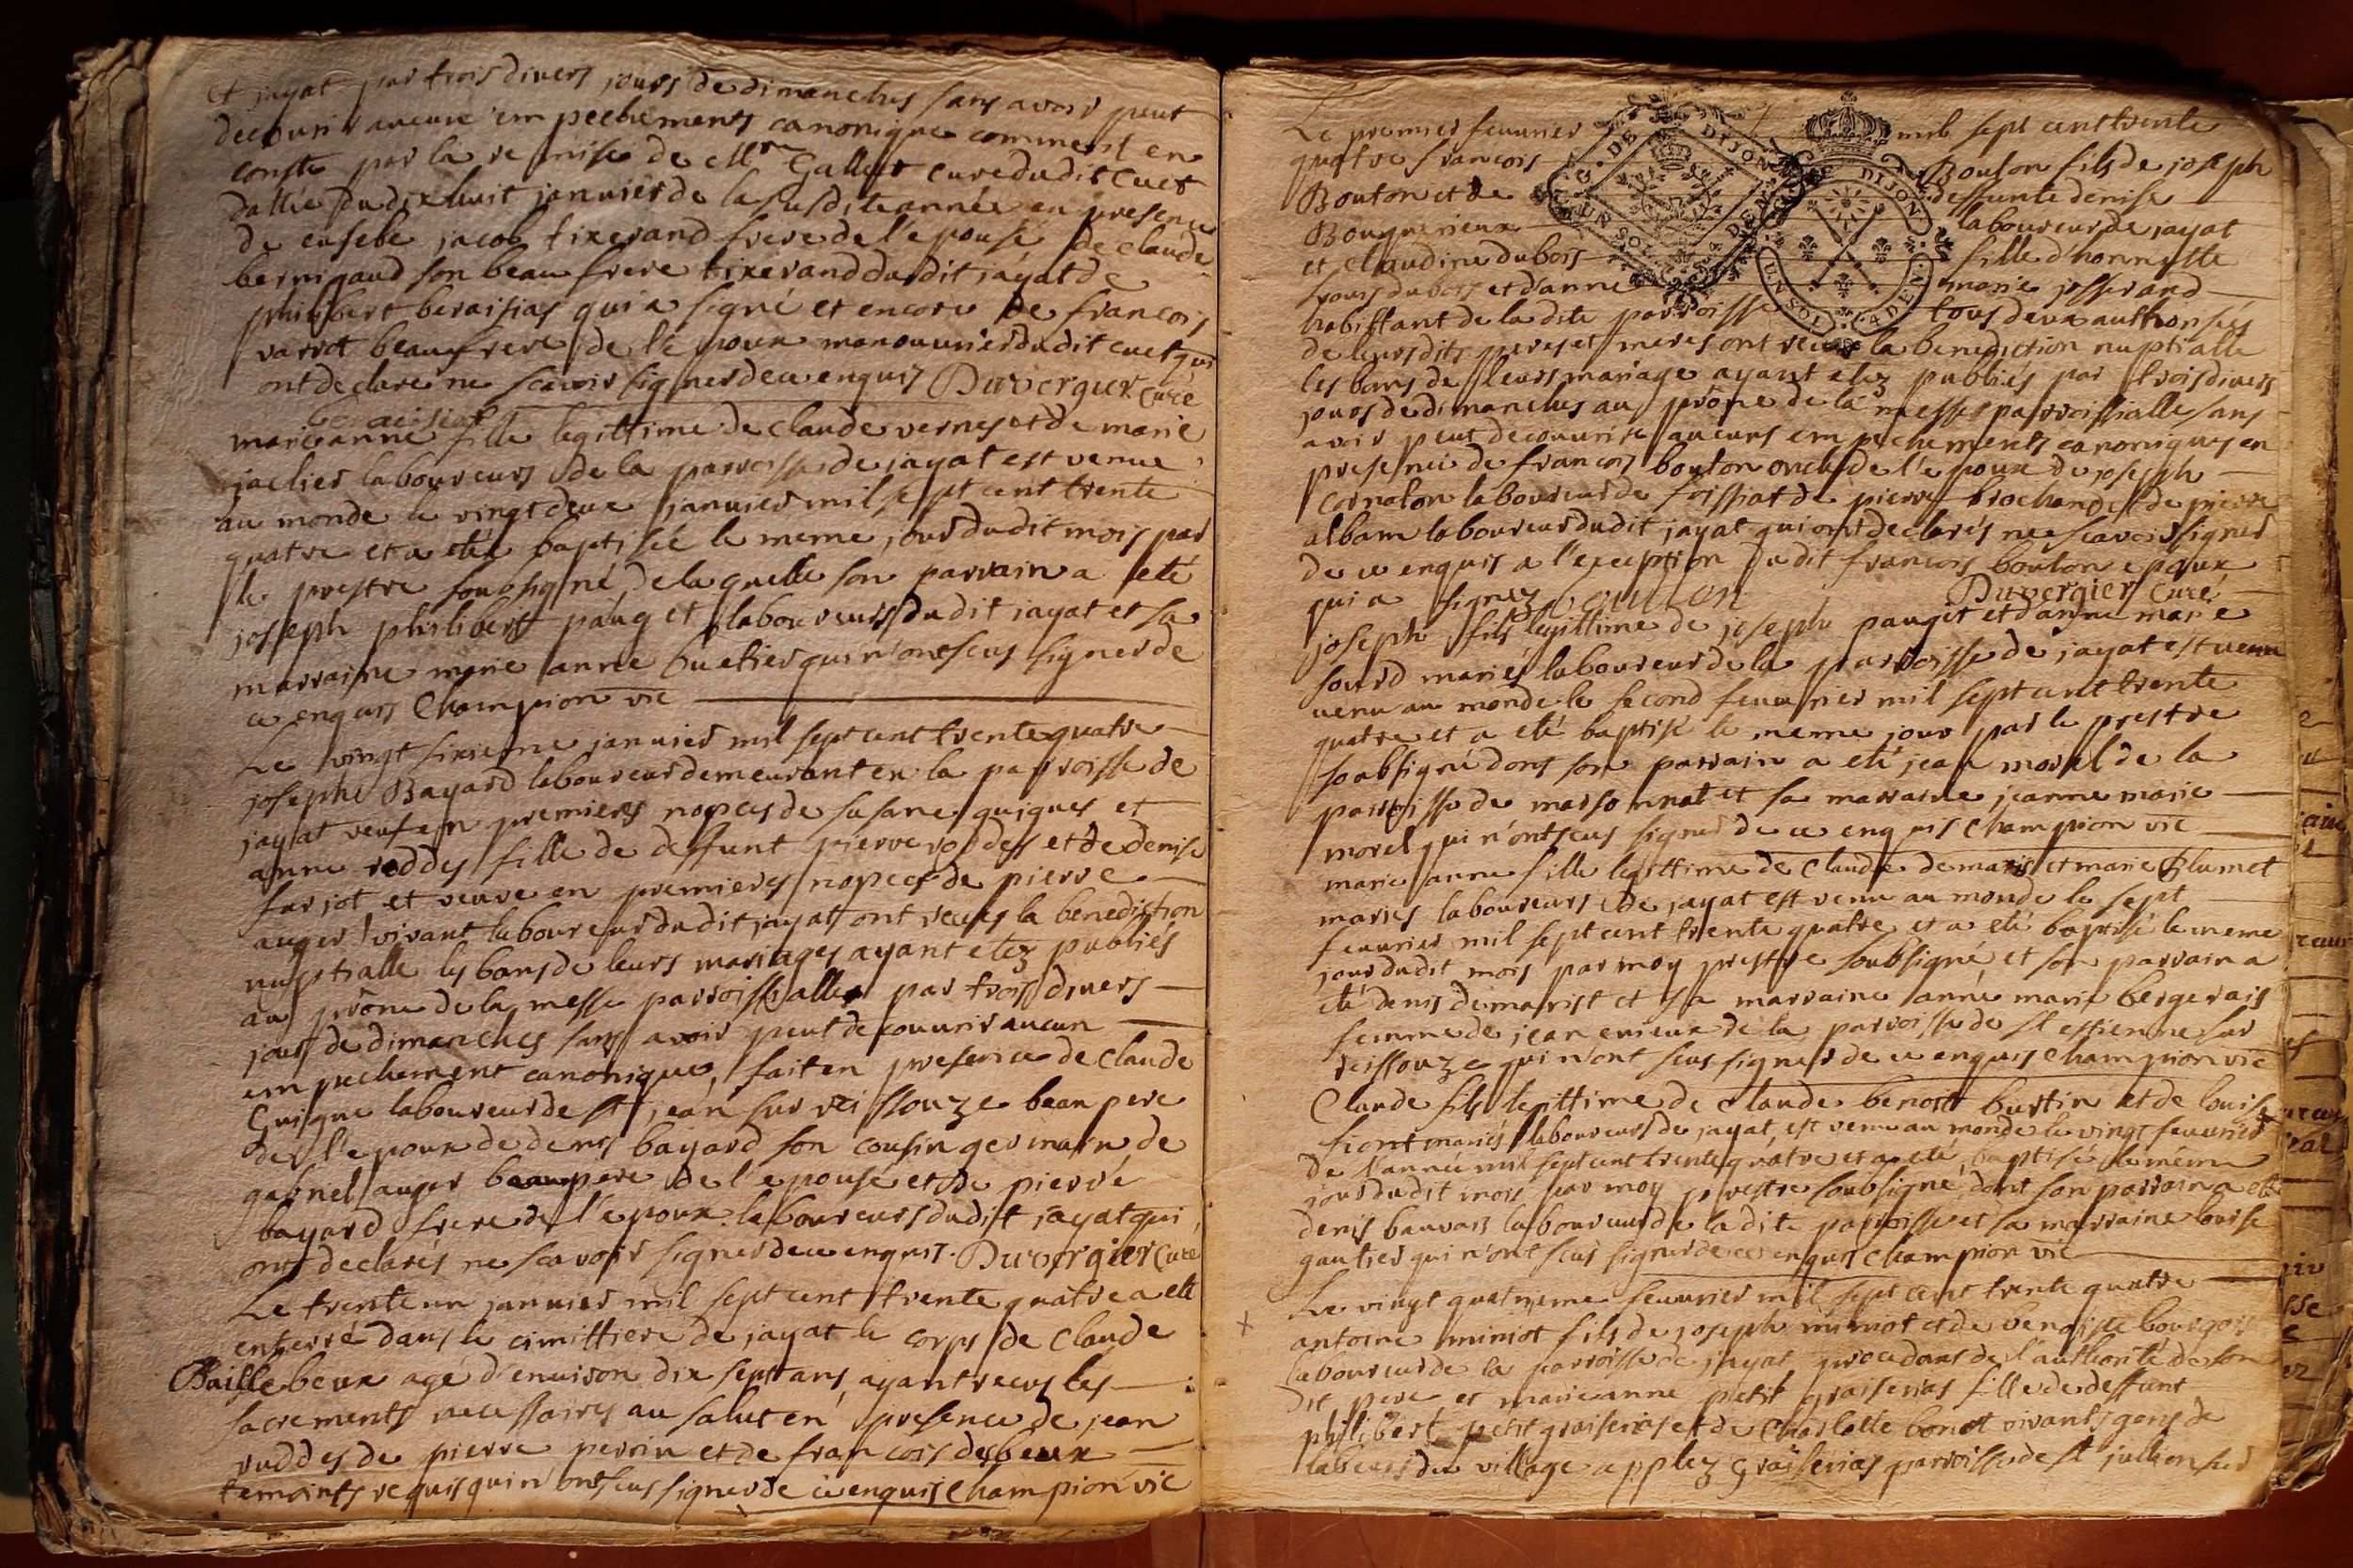 et jayat par trois divers jours de dimanches sans avoir peut
decouvrir aucune empechements canonique comment en
conste par la remise de Mre Gallet curé dudit cuet
dattée du dixhuit janvier de la susdite année en presence
de eusebe jacob tixerand frere de l'epouse de claude
bernigaud son beau frere tixerand dudit jayat de
philibert beraisias qui a signé et encore de francois
varrot beaufrere de l'epoux manouvrier dudit cuet qui
ont declare ne scavoir signer de ce enquis Duvergier curé
marieanne fille legittime de claude vernes et de marie
jaclier laboureurs de la parroisse de jayat est venue
au monde le vingtdeux janvier mil sept cent trente
quatre et a etée baptisée le meme jour dudit mois par
le prestre soubsigné de laquelle son parrain a eté
joseph philibert pauget laboureurs dudit jayat et sa
marraine marie anne buetier qui n'ont scus signer de
ce enquis Champion vic
Le vingt sixieme janvier mil sept cent trente quatre
joseph Bayard laboureur demeurant en la parroisse de
jayat veuf en premieres nopces de susane guigues et
anne roddes fille de deffunt pierre roddes et de denise
farjot et veuve en premieres nopces de pierre
auger vivant laboureur dudit jayat ont recus la benediction
nuptialle les bans de leurs mariages ayant etez publiés
au prône de la messe parroissialle par trois divers
jours de dimanches sans avoir peut decouvrir aucun
empechement canonique, fait en presence de claude
Guigue laboureur de st jean sur reissouze beaupere
de l'epoux de denis bayard son cousin germain de
gabriel auger beaupere de l'epouse et de pierre
bayard frere de l'epoux laboureurs dudit jayat qui
ont declarés ne scavoir signer de ce enquis. Duvergier curé
Le trente un janvier mil sept cent trente quatre a eté
enterré dans le cimittiere de jayat le corps de Claude
Baillebeux agé d'environ dix sept ans ayant recus les
sacrements necessaires au salut en presence de jean
ruddes de pierre perrin et de francois desbeux
temoints requis qui n'ont scus signer de ce enquis Champion vic
Le premier fevvrier mil sept cent trente
quatre francois Bouton fils de joseph
Bouton et de deffunte denise
Bouquerieux laboureur de jayat
et claudine dubois fille d'honneste
louis dubois et d'anne marie josserand
habittant de la dite parroisse tous deux authorisés
de leursdits peres et meres ont recus la benediction nuptialle
les bans de leurs mariage ayant etez publiés par trois divers
jours de dimanches au prône de la messe parroissialle sans
avoir peut decouvrir aucuns empechements canoniques en
presence de francois bouton oncle de l'epoux de joseph
cornaton laboureur de foissiat de pierre brochand et de pierre
alban laboureur dudit jayat qui ont declarés ne scavoir signer
de ce enquis a l'exception dudit francois bouton epoux
qui a signez bouton Duvergier curé
joseph fils legittime de joseph pauget et d'anne marie
sourd mariés laboureur de la parroisse de jayat est venu
venu au monde le second fevvrier mil sept cent trente
quatre et a eté baptisé le meme jour par le prestre
soubsigné dont son parrain a eté jean morel de la
parroisse de marsonnat et sa marraine jeanne marie
morel qui n'ont scus signer de ce enquis Champion vic
marie anne fille legittime de Claude demaris et marie Blumet
mariés laboureurs de jayat est venu au monde le sept
fevvrier mil sept cent trente quatre et a eté baptisé le meme
jour dudit mois par moy prestre soubsigné et son parrain a
eté denis demarist et sa marraine anne marie bergerais
femme de jean enieux de la parroisse de st estienne sur
reissouze qui n'ont scus signer de ce enquis Champion vic
Claude fils legittime de Claude benoit burtin et de louise
fiont mariés laboureurs de jayat, est venu au monde le vingt fevvrier
de l'année mil sept cent trente quatre et a eté baptisé le même
jour dudit mois par moy prestre soubsigné, dont son parrain a eté
denis bauvais laboureur de la dite parroisse et sa marraine louise
gautier qui n'ont scus signer de ce enquis Champion vic
Le vingt quatrieme fevvrier mil sept cent trente quatre
antoine miniot fils de joseph miniot et de benoiste bourgois
laboureur de la parroisse de jayat procedans de l'authorité de son
dit pere et marieanne petit graiserias fille de deffunt
philibert petit graiserias et de Charlotte bonot vivants gens de
labeurs du village appllez Graiserias parroisse de st jullien sur